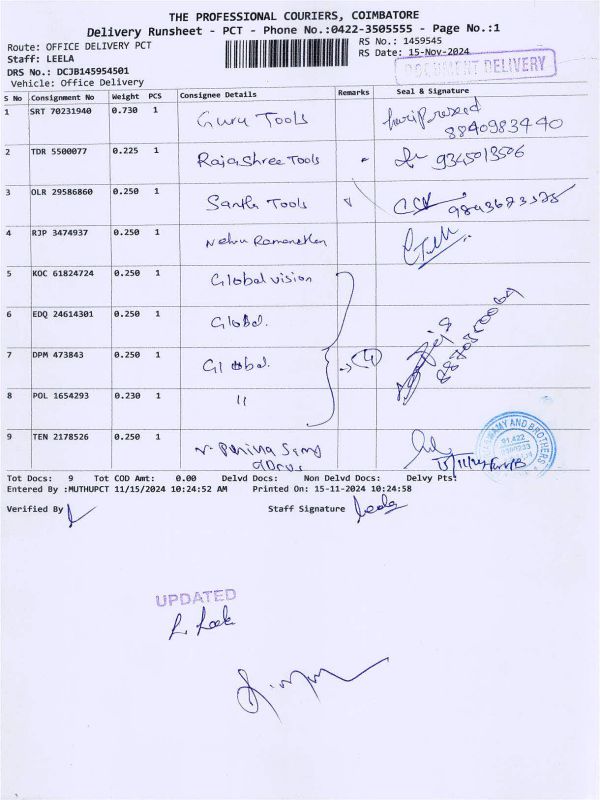 THE PROFESSIONAL COURIERS, COIMBATORE
Delivery Runsheet - PCT - Phone No.:0422-3505555 - Page No.:1
Route: OFFICE DELIVERY PCT
RS No.: 1459545
Staff: LEELA
RS Date: 15-Nov-2024
DRS No.: DCJB145954501
DOCUMENT DELIVERY
Vehicle: Office Delivery
S No Consignment No Weight PCS Consignee Details Remarks Seal & Signature
1 SRT 70231940 0.730 1 Guru Tools hariPrasad
8840983440
2 TDR 5500077 0.225 1 RajaShree Tools 9345013506
3 OLR 29586860 0.250 1 Santhi Tools
4 RJP 3474937 0.250 1 Nehru
5 KOC 61824724 0.250 1 Global vision
6 EDQ 24614301 0.250 1 Global.
7 DPM 473843 0.250 1 Global. 4
8 POL 1654293 0.230 1 "
9 TEN 2178526 0.250 1
15/11/24
AND BROTHERS
Tot Docs: 9 Tot COD Amt: 0.00 Delvd Docs: Non Delvd Docs: Delvy Pts:
Entered By :MUTHUPCT 11/15/2024 10:24:52 AM Printed On: 15-11-2024 10:24:58
Verified By Staff Signature Leela
UPDATED